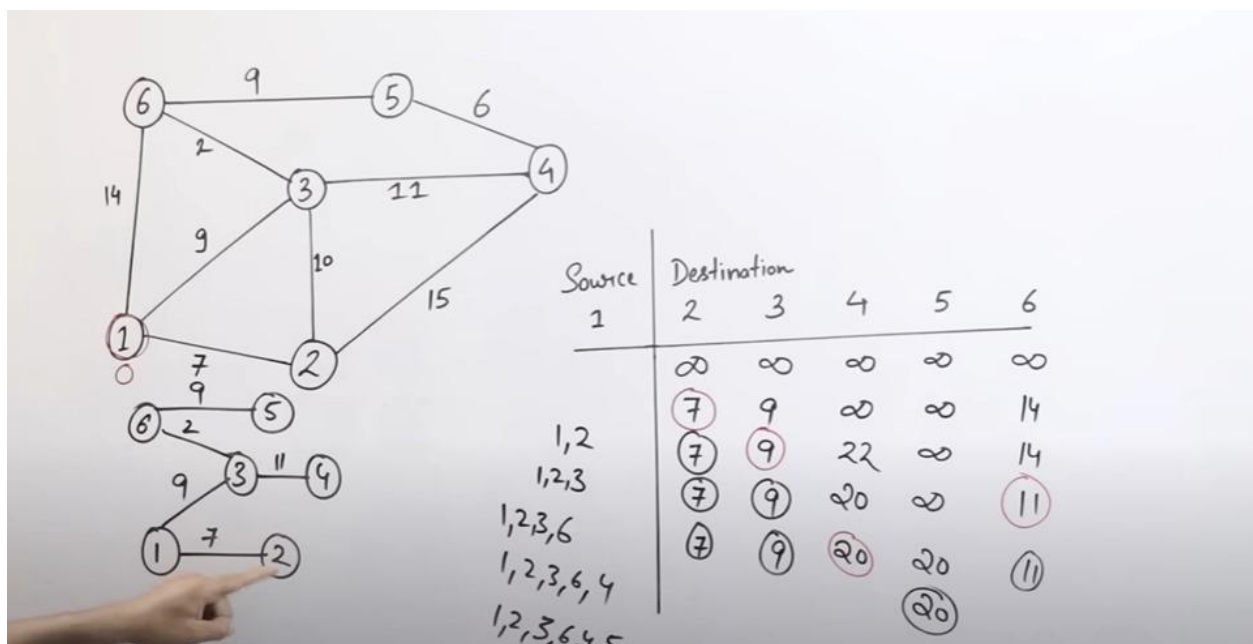 9
6
5
6
2
4
14
3
11
9
10
15
1
7
2
0
9
6
5
2
3
11
4
9
1
7
2
Source
Destination
1
2 3 4 5 6
∞ ∞ ∞ ∞ ∞
7 9 ∞ ∞ 14
1,2
7 9 22 ∞ 14
1,2,3
7 9 20 ∞ 11
1,2,3,6
7 9 20 20 11
1,2,3,6,4
20
1,2,3,6,4,5